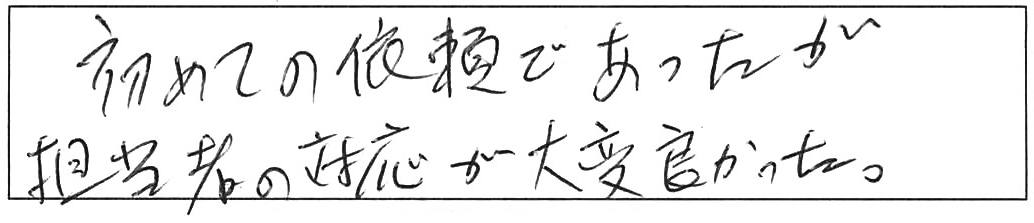 初めての依頼であったが
担当者の対応が大変良かった。